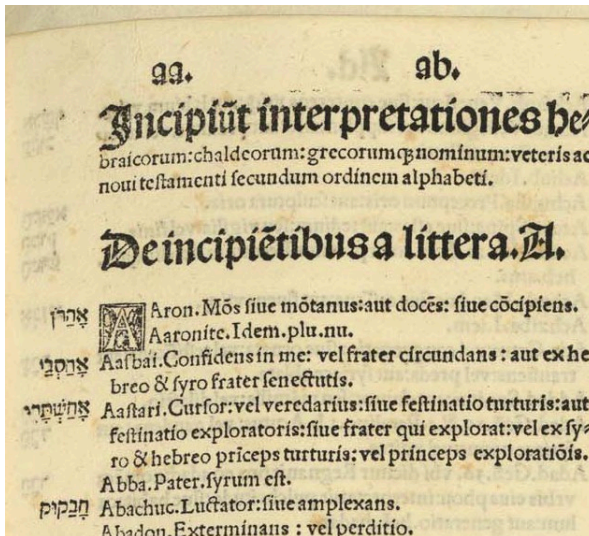 aa. ab.
Incipiūt interpretationes he⸗
braicorum:chaldeorum:grecorumqꝫ nominum:veteris ac
noui testamenti secundum ordinem alphabeti.
De incipiētibus a littera.A.
אַהֲרֹן AAron.Mōs siue mōtanus:aut docēs: siue cōcipiens.
Aaronite.Idem.plu.nu.
אֲחַסְבַּי Aasbai.Confidens in me: vel frater circundans : aut ex he
breo & syro frater senectutis.
אֲחַשְׁתָּרִי Aastari.Cursor:vel veredarius:siue festinatio turturis:aut
festinatio exploratoris:siue frater qui explorat:vel ex sy⸗
ro & hebreo prīceps turturis: vel princeps exploratiōis.
Abba.Pater.syrum est.
חֲבַקּוּק Abachuc.Luctator:siue amplexans.
Abadon.Exterminans : vel perditio.